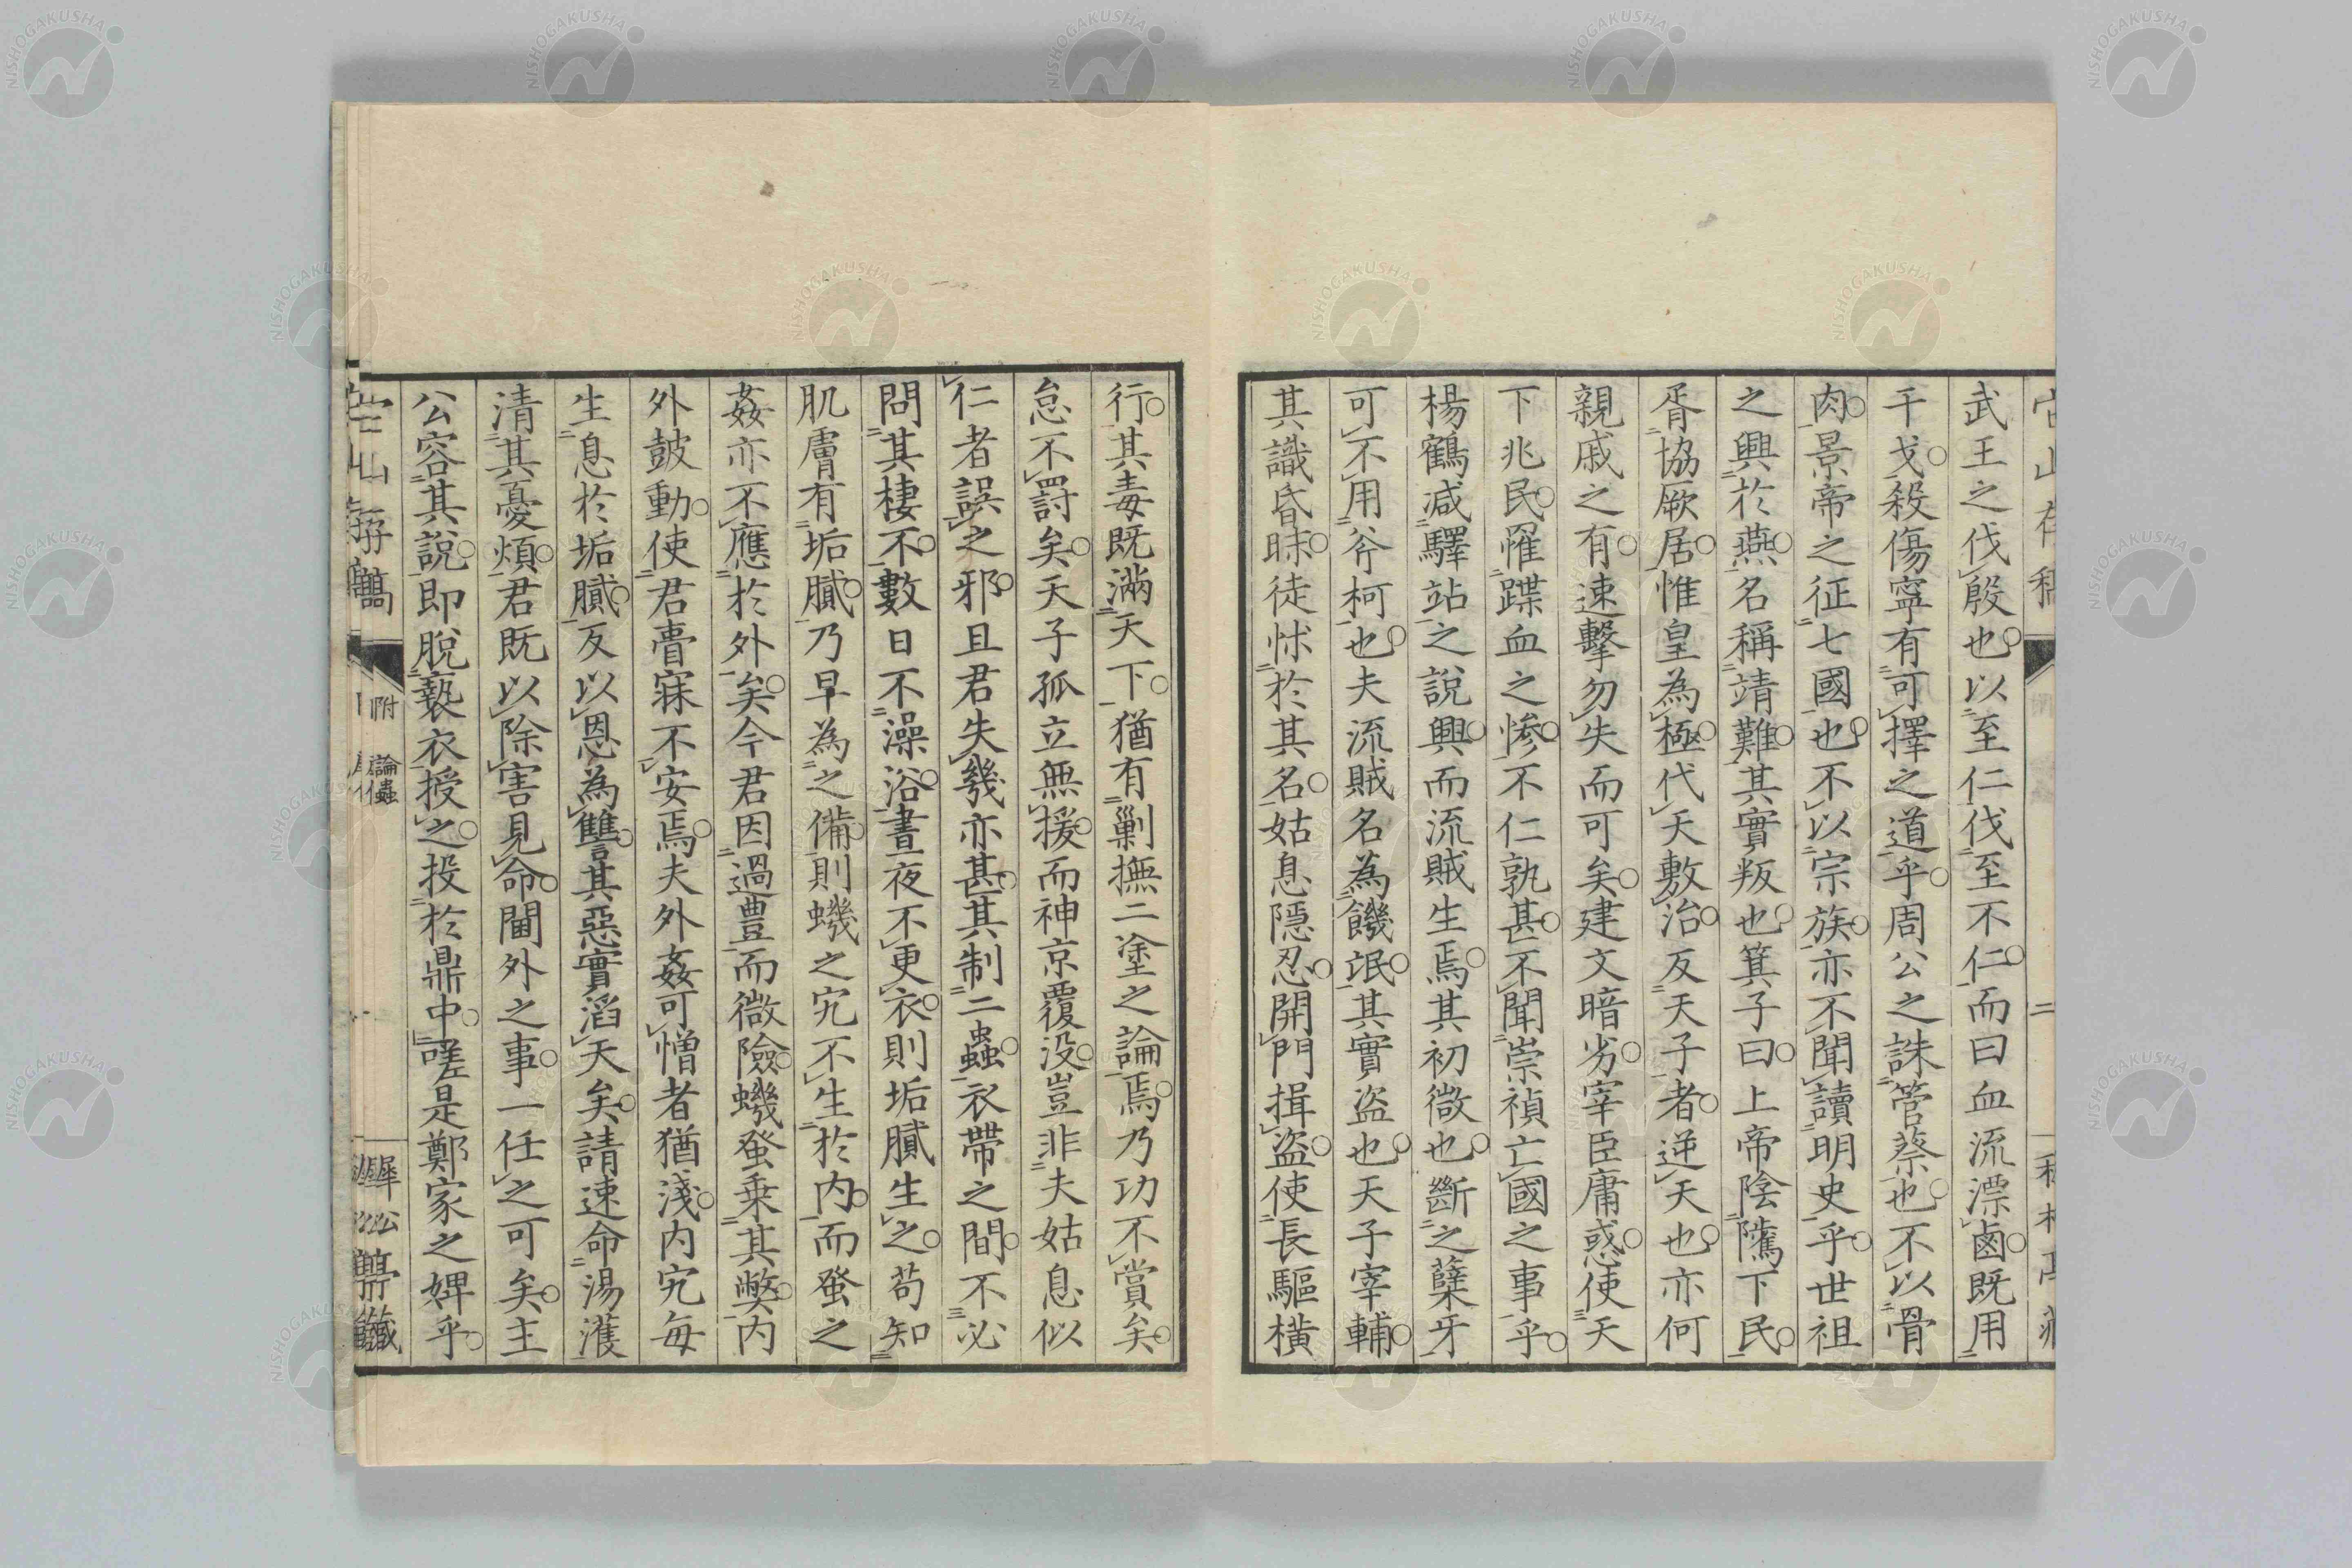 武王之伐殷也以至仁伐至不仁而曰血流漂鹵既用
干戈殺傷寧有可擇之道乎周公之誅管蔡也不以骨
肉景帝之征七國也不以宗族亦不聞讀明史乎世祖
之興於燕名稱靖難其實叛也箕子曰上帝陰隲下民
胥協厥居惟皇為極代天敷治反天子者逆天也亦何
親戚之有速擊勿失而可矣建文暗劣宰臣庸惑使天
下兆民罹蹀血之惨不仁孰甚不聞崇禎亡國之事乎
楊鶴減驛站之說興而流賊生焉其初微也斷之蘖牙
可不用斧柯也夫流賊名為饑氓其實盜也天子宰輔
其識昏昧徒怵於其名姑息隱忍開門揖盜使長驅橫
行其毒既滿天下猶有剿撫二塗之論焉乃功不賞矣
怠不罸矣天子孤立無援而神京覆没豈非夫姑息似
仁者誤之邪且君失幾亦甚其制二蟲衣帶之間不必
問其棲不數日不澡浴晝夜不更衣則垢膩生之苟知
肌膚有垢膩乃早為之備則蟣之宄不生於内而蚤之
姦亦不應於外矣今君因過豊而微險蟣蚤乗其弊内
外鼓動使君夢寐不安焉夫外姦可憎者猶淺内宄毎
生息於垢膩反以恩為讐其惡實滔天矣請速命湯濩
清其憂煩君既以除害見命閫外之事一任之可矣主
公容其說即脫褻衣授之投於鼎中嗟是鄭家之婢乎
附 論蟲